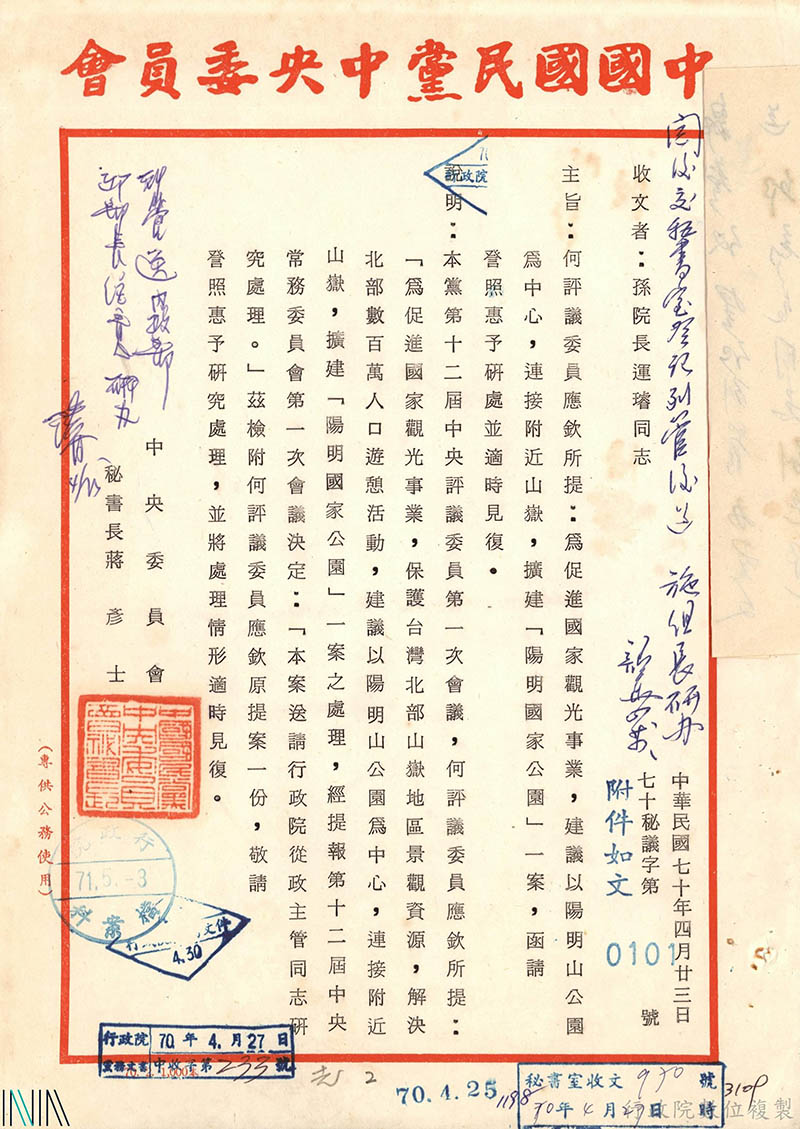 中國國民黨中央委員會
收文者：孫院長運璿同志
中華民國七十年四月廿三日
七十秘議字第 0101 號
附件如文
主旨：何評議委員應欽所提：爲促進國家觀光事業，建議以陽明山公園
爲中心，連接附近山嶽，擴建「陽明國家公園」一案，函請
詧照惠予硏處並適時見復。
說明：本黨第十二屆中央評議委員第一次會議，何評議委員應欽所提：
「爲促進國家觀光事業，保護台灣北部山嶽地區景觀資源，解決
北部數百萬人口遊憩活動，建議以陽明山公園爲中心，連接附近
山嶽，擴建「陽明國家公園」一案之處理，經提報第十二屆中央
常務委員會第一次會議決定：「本案送請行政院從政主管同志硏
究處理。」茲檢附何評議委員應欽原提案一份，敬請
詧照惠予硏究處理，並將處理情形適時見復。
中央委員會
秘書長蔣彥士
施組長研办
（專供公務使用）
71.5.-3
4.30
行政院 70年4.月27日
中收字第233號
70.4.25
秘書室收文970號
70年4月27日 時
行政院數位複製